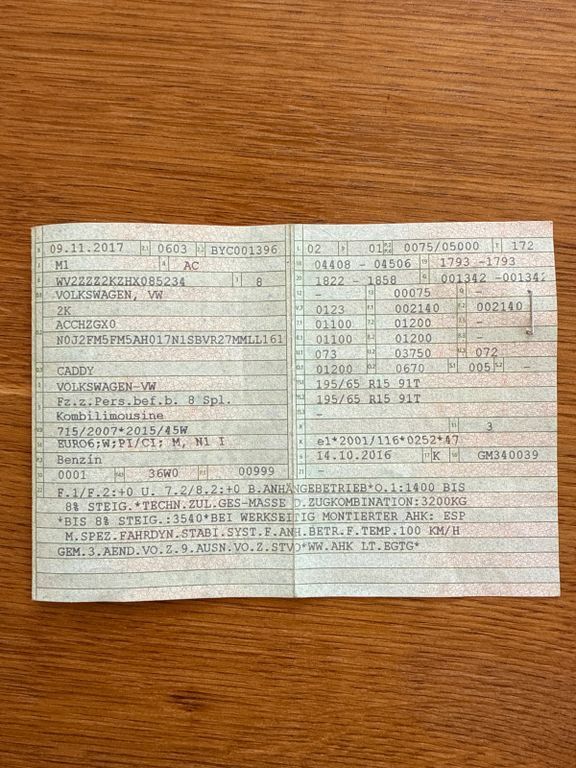 09.11.2017 0603 BYC001396
M1 AC
WV2ZZZ2KZHX085234 8
VOLKSWAGEN, VW
2K
ACCHZGX0
N0J2FM5FM5AH017N1SBVR27MMLL161
CADDY
VOLKSWAGEN-VW
Fz.z.Pers.bef.b. 8 Spl.
Kombilimousine
715/2007*2015/45W
EURO6;W;PI/CI; M, N1 I
Benzin
0001 36W0 00999
02 01 0075/05000 172
04408 - 04506 1793 -1793
1822 - 1858 001342 -001342
- 00075 -
0123 002140 002140
01100 01200 -
01100 01200 -
073 03750 072
01200 0670 005 -
195/65 R15 91T
195/65 R15 91T
-
3
e1*2001/116*0252*47
14.10.2016 K GM340039
-
F.1/F.2:+0 U. 7.2/8.2:+0 B.ANHÄNGEBETRIEB*O.1:1400 BIS
8% STEIG.*TECHN.ZUL.GES-MASSE D.ZUGKOMBINATION:3200KG
*BIS 8% STEIG.:3540*BEI WERKSEITIG MONTIERTER AHK: ESP
M.SPEZ.FAHRDYN.STABI.SYST.F.ANH.BETR.F.TEMP.100 KM/H
GEM.3.AEND.VO.Z.9.AUSN.VO.Z.STVO*WW.AHK LT.EGTG*